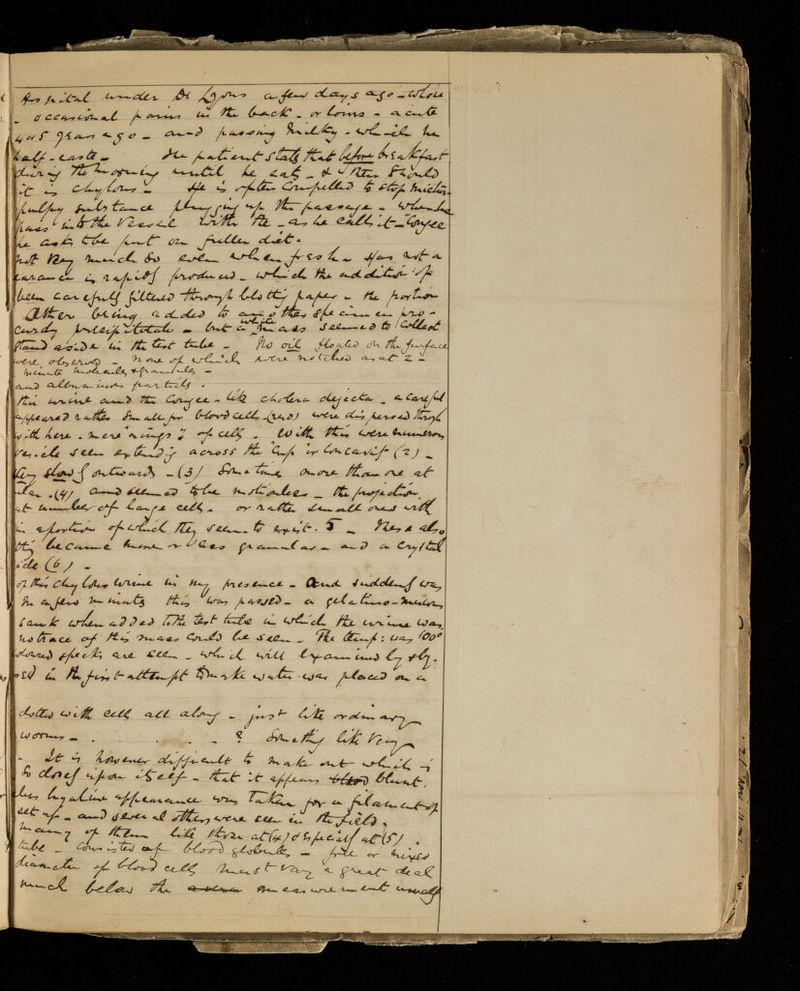 Hospital under Dr Lyons a few days ago - whose
- occasional pains in the back - or loins - acute
4 or 5 years ago - and passing milky - which he
half-caste - The patient states that before breakfast
during the morning until he eats - & then should
it is chylous - He is often compelled to stop
pulpy substance plugging up the passage - when he
pass into the vessel with the - as he calls it - "Congee
he asks to be put on fuller diet.
not very much so even when fresh - has not a
is rapidly produced - which the addition of
been carefully filtered through blotting paper - the portion
After being added to another specimen
curdy precipitate - but a white mass seemed to collect
stand aside in the test tube - No oil floated on the surface
were observed - none of which were notched as at 2 -
minute molecules & granules -
and albuminous particles.
this urine and the Congee - like cholera dejecta. a careful
appeared rather small for blood cells (red) were dispersed through
with here - mere "rings" of cells. With this were numerous
seen extending across the cup or concavity (2) -
very slowly outwards - (3) Sometime more than one at
(4) and seemed to be motionless - the projection
number of large cells. or rather small ones with
in a portion of which they seem to exist. 5 - These also
became more or less granular - and a crystal
(6) -
of this chylous urine in my presence - and suddenly was
In a few minutes this was passed - a gelatino-
sank when added to the test tube in which the urine was
no trace of this mass could be seen. The temp: was 100°
coloured specks are seen - which will examined by &by.
in the first attempt to make water was placed on a
dotted with cells all along - just like ordinary
worms - . . . . - ? Something like very
- It is however difficult to make out which is
so closely upon itself - that it appears blunt.
hyaline appearance was taken for a filament of
set up - and several others were seen in the field.
many of them like those at (4) & especially at (5).
tube - consisted of blood globules - free or mixed
diameter of blood cells must vary a great deal
much below the measurement usually